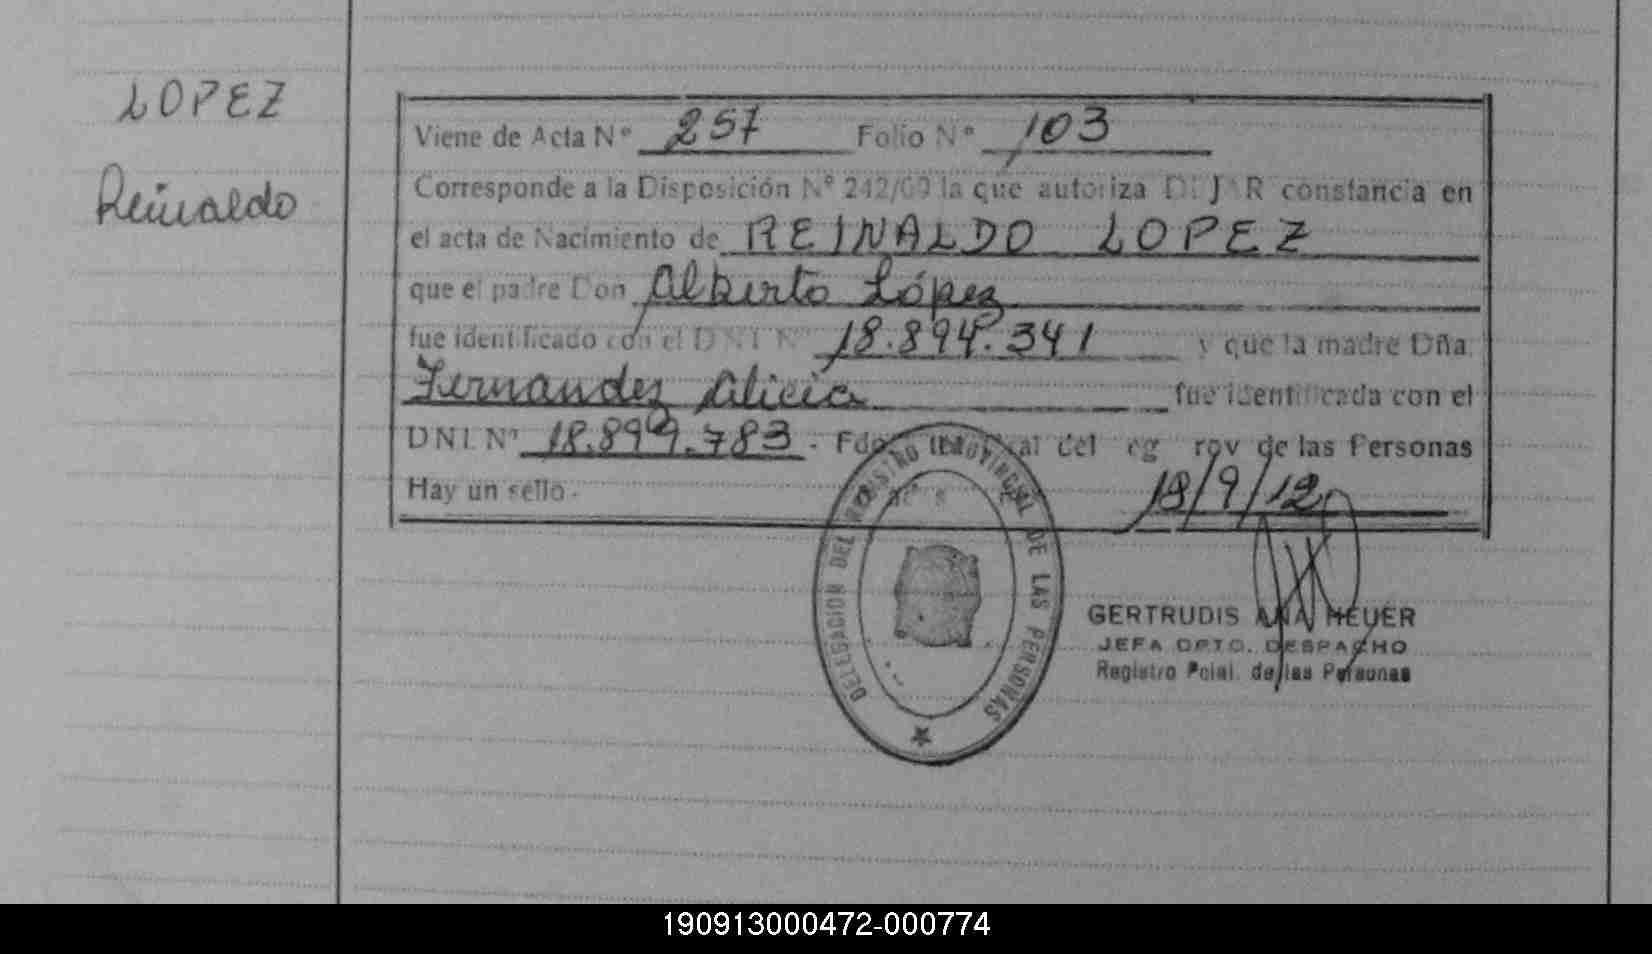 LOPEZ
Reinaldo
Viene de Acta Nº 257 Folio Nº 103
Corresponde a la Disposición Nº 242/09 la que autoriza DEJAR constancia en
el acta de Nacimiento de REINALDO LOPEZ
que el padre Don Alberto López
fue identificado con el DNI Nº 18.894.341 y que la madre Dña.
Fernandez Alicia fue identificada con el
DNI. Nº 18.899.783 - Fdo. del de las Personas
Hay un sello.- 18/9/12
DELEGACION DEL REGISTRO PROVINCIAL DE LAS PERSONAS
GERTRUDIS ANA HEUER
JEFA DPTO. DESPACHO
Registro Pcial. de las Personas
190913000472-000774